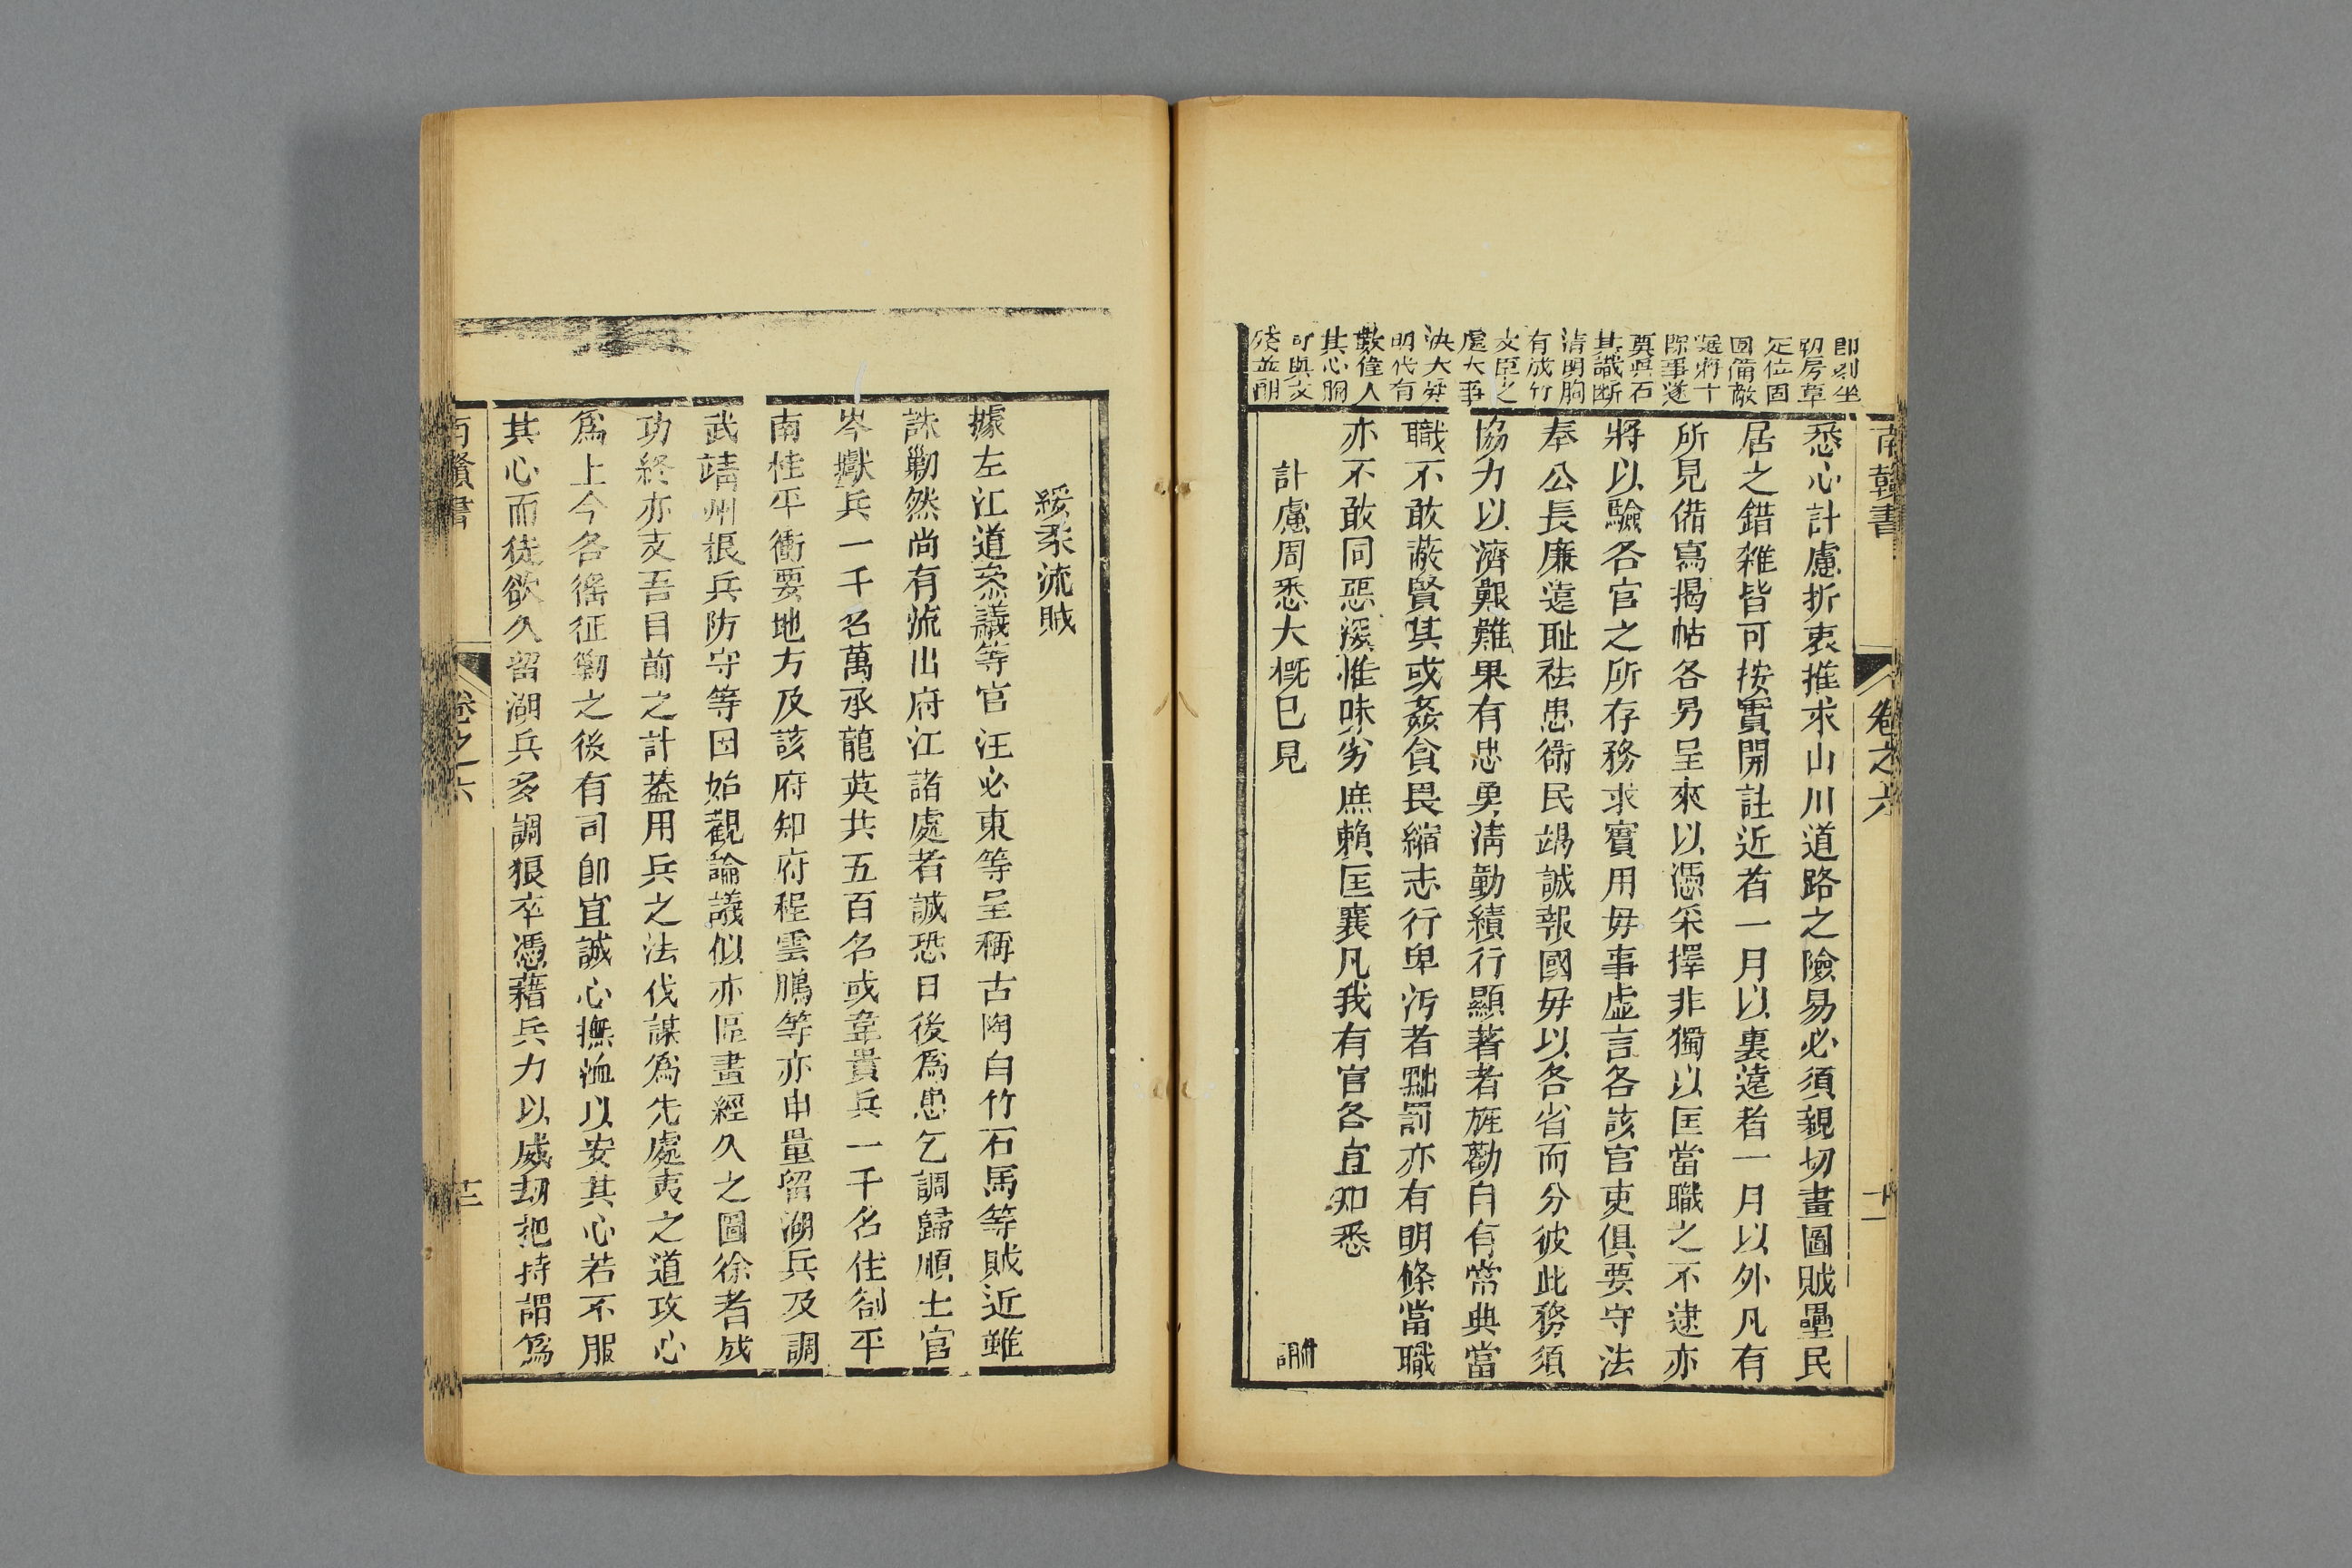 南贛書
卷之六
十一
即別坐
切房草
定位固
固備敵
選將十
際事遂
奠與石
其識斷
清明胸
有成竹
文臣之
處大事
決大
明代有
數偉人
其心胸
可與文
悉心計慮折衷推求山川道路之險易必須親切畫圖賊壘民
居之錯雜皆可按實開註近者一月以裏遠者一月以外凡有
所見備寫揭帖各另呈來以憑采擇非獨以匡當職之不逮亦
將以驗各官之所存務求實用毋事虛言各該官吏俱要守法
奉公長廉遠耻祛患衛民竭誠報國毋以各省而分彼此務須
協力以濟艱難果有忠勇淸勤績行顯著者旌勸自有常典當
職不敢蔽賢其或姦貪畏縮志行卑汚者黜罰亦有明條當職
亦不敢同惡深惟昧劣庶賴匡襄凡我有官各宜知悉
計慮周悉大概已見
綏柔流賊
據左江道叅議等官汪必東等呈稱古陶白竹石馬等賊近雖
誅勦然尚有流出府江諸處者誠恐日後爲患乞調歸順土官
岑瓛兵一千名萬承龍英共五百名或韋貴兵一千名住劄平
南桂平衝要地方及該府知府程雲鵬等亦申量留湖兵及調
武靖州狼兵防守等因始觀論議似亦區畫經久之圖徐考成
功終亦支吾目前之計蓋用兵之法伐謀爲先處夷之道攻心
爲上今各徭征勦之後有司卽宜誠心撫恤以安其心若不服
其心而徒欲久留湖兵多調狼卒憑藉兵力以威劫把持謂爲
南贛書
卷之六